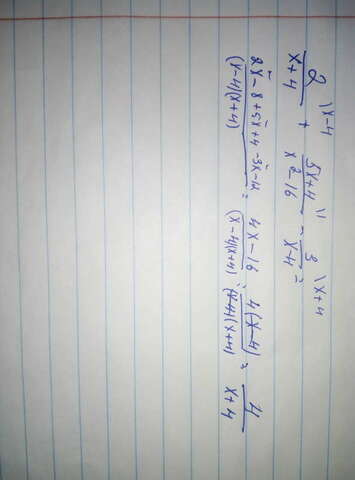 2 \x-4 / x+4 + 5x+4 \1 / x²-16 - 3 \x+4 / x-4 =
2x-8+5x+4-3x-12 / (x-4)(x+4) = 4x-16 / (x-4)(x+4) = 4(x-4) / (x-4)(x+4) = 4 / x+4